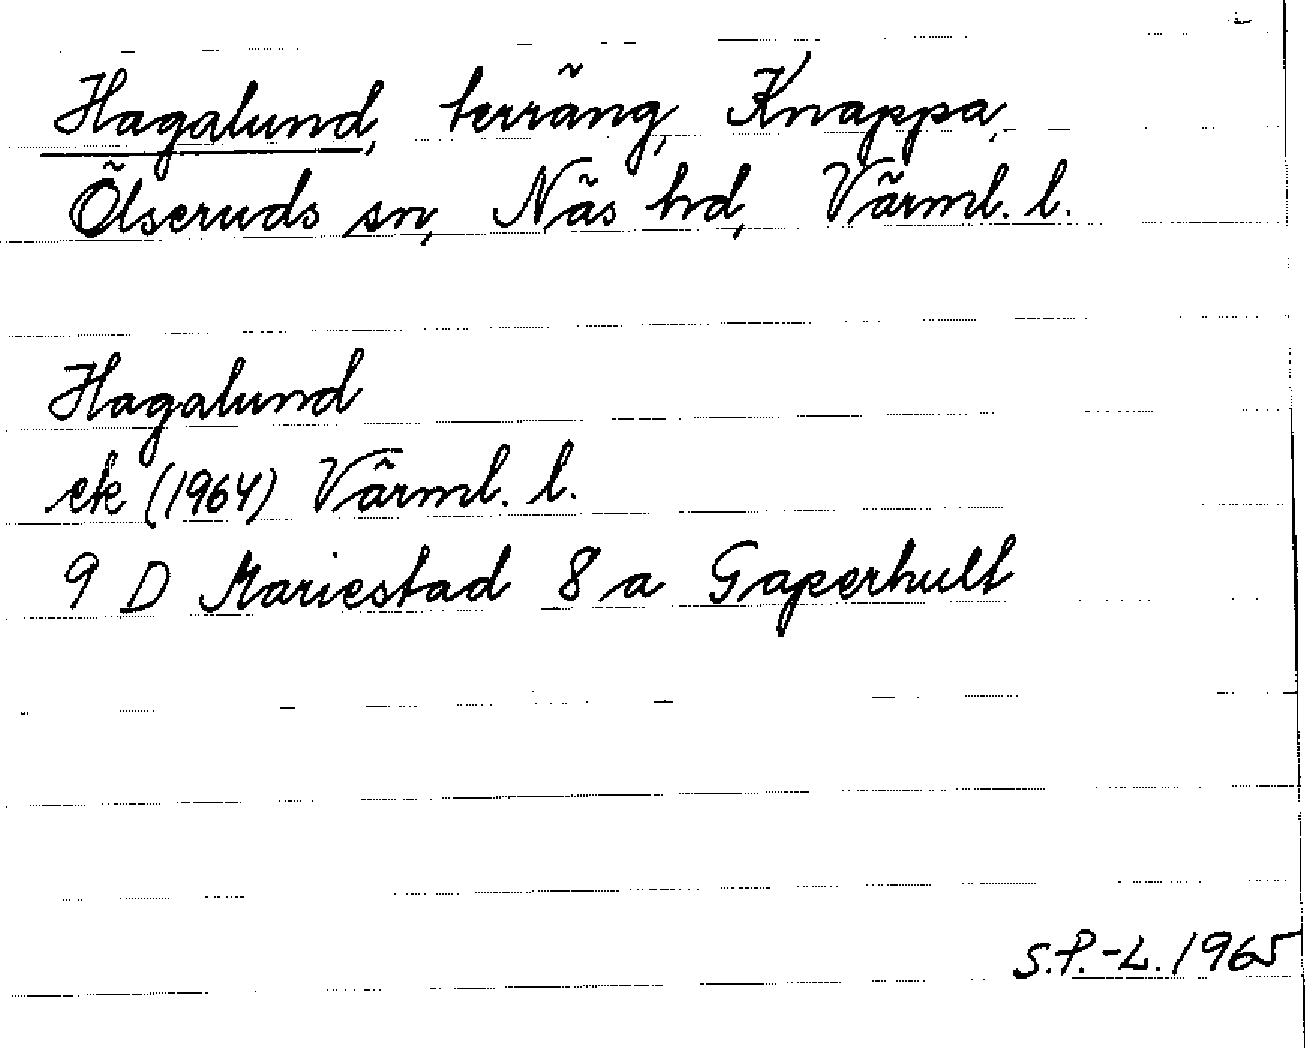 Hagalund, terräng, Knappa,
Ölseruds sn, Näs hd, Värml. l.
Hagalund
ek (1964) Värml. l.
9 D Mariestad 8 a Gaperhult
S.P.-L. 1965